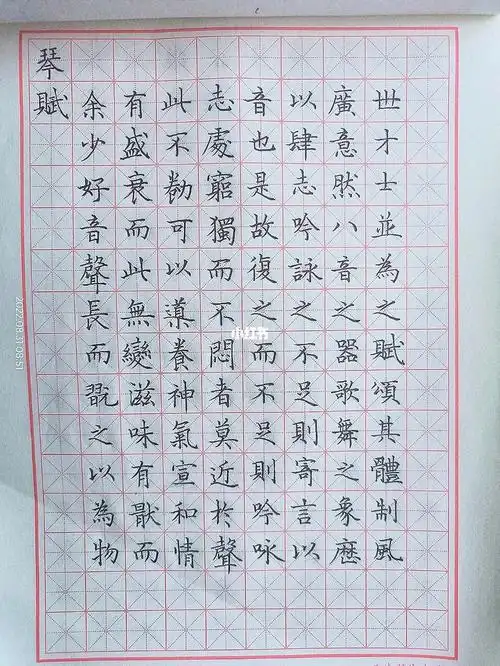 琴賦
余少好音聲長而翫之以為物
有盛衰而此無變滋味有猒而
此不勌可以導養神氣宣和情
志處窮獨而不悶者莫近於聲
音也是故復之而不足則吟咏
以肆志吟詠之不足則寄言以
廣意然八音之器歌舞之象歷
世才士並為之賦頌其體制風
小红书
2022.08.31 08:51